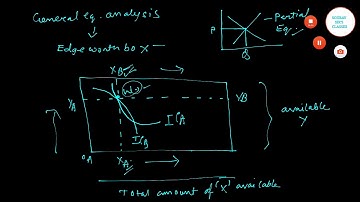 General eq. analysis
Edgeworth box
Partial Eq.
P
Q
XB
W
YA
YB
ICA
ICB
OA
XA
available
Y
Total amount of 'X' available